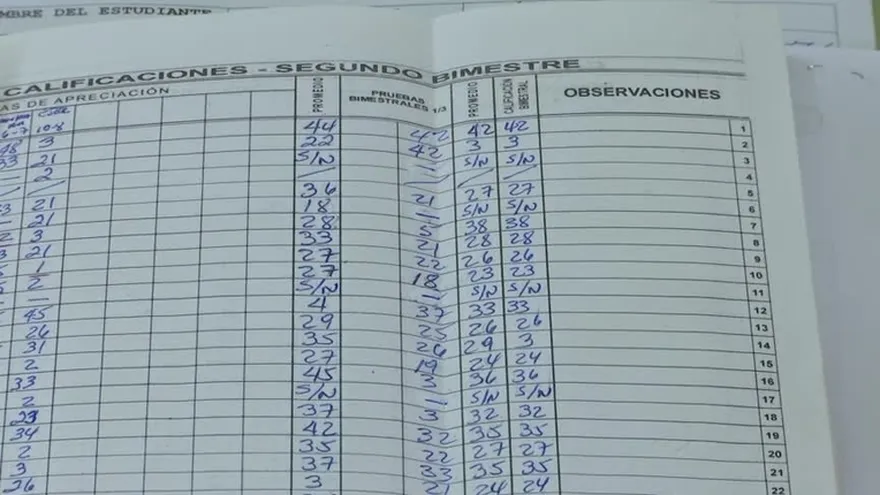 MBRE DEL ESTUDIANTE
CALIFICACIONES - SEGUNDO BIMESTRE
AS DE APRECIACIÓN PROMEDIO PRUEBAS BIMESTRALES 1/3 PROMEDIO CALIFICACIÓN BIMESTRAL OBSERVACIONES
6-7 10-8
48 3 44 42 42 42 1
33 21 22 42 3 3 2
- 2 S/N S/N S/N 3
/ / / / / / 4
53 21 36 21 27 27 5
21 18 1 S/N S/N 6
2 3 28 5 38 38 7
3 21 33 21 28 28 8
1 27 22 26 26 9
2 27 18 23 23 10
- S/N 1 S/N S/N 11
45 4 37 33 33 12
26 29 25 26 26 13
31 35 26 29 3 14
2 27 19 24 24 15
33 45 3 36 36 16
2 S/N 1 S/N S/N 17
23 37 3 32 32 18
34 42 32 35 35 19
2 35 22 27 27 20
3 37 33 35 35 21
26 3 21 24 24 22